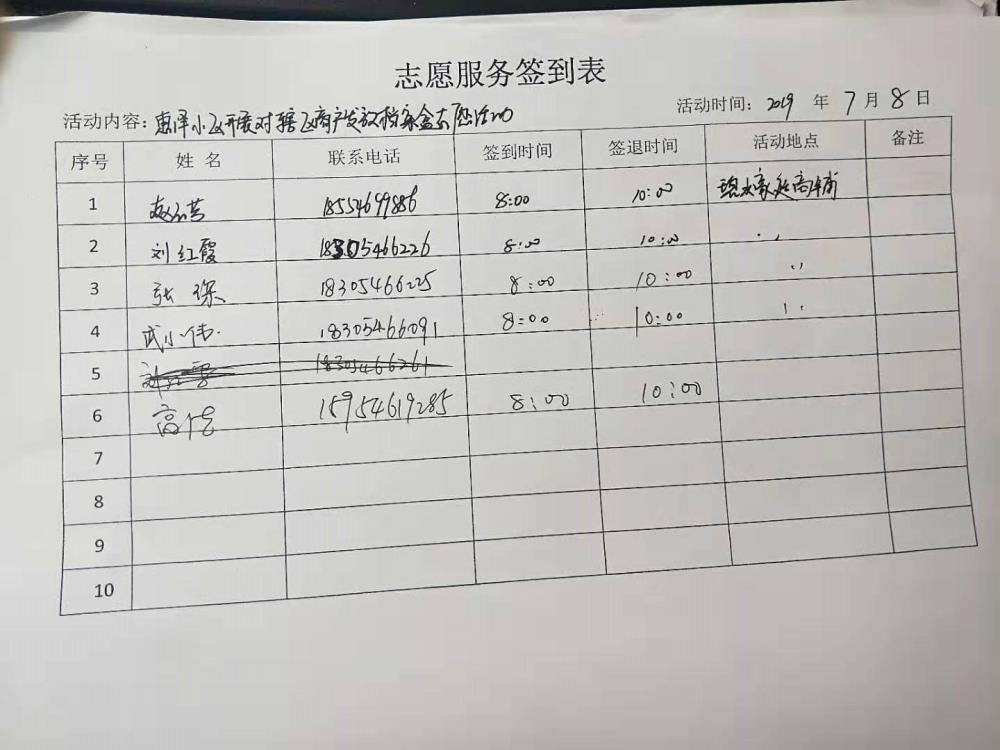 志愿服务签到表
活动内容：惠泽小区开展对辖区商户发放档案盒志愿活动 活动时间：2019 年 7 月 8 日
序号 姓名 联系电话 签到时间 签退时间 活动地点 备注
1 18554699886 8:00 10:00 商铺
2 刘红霞 18305466226 8:00 10:00 〃
3 张琛 18305466225 8:00 10:00 〃
4 武小伟 18305466091 8:00 10:00 〃
5 18305466261
6 高 15954619285 8:00 10:00
7
8
9
10